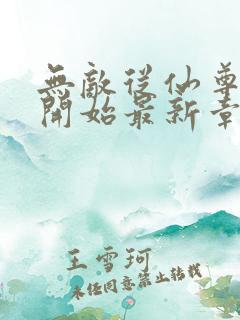 無敵從仙尊
開始最新章
王雪珂
未经同意禁止转载